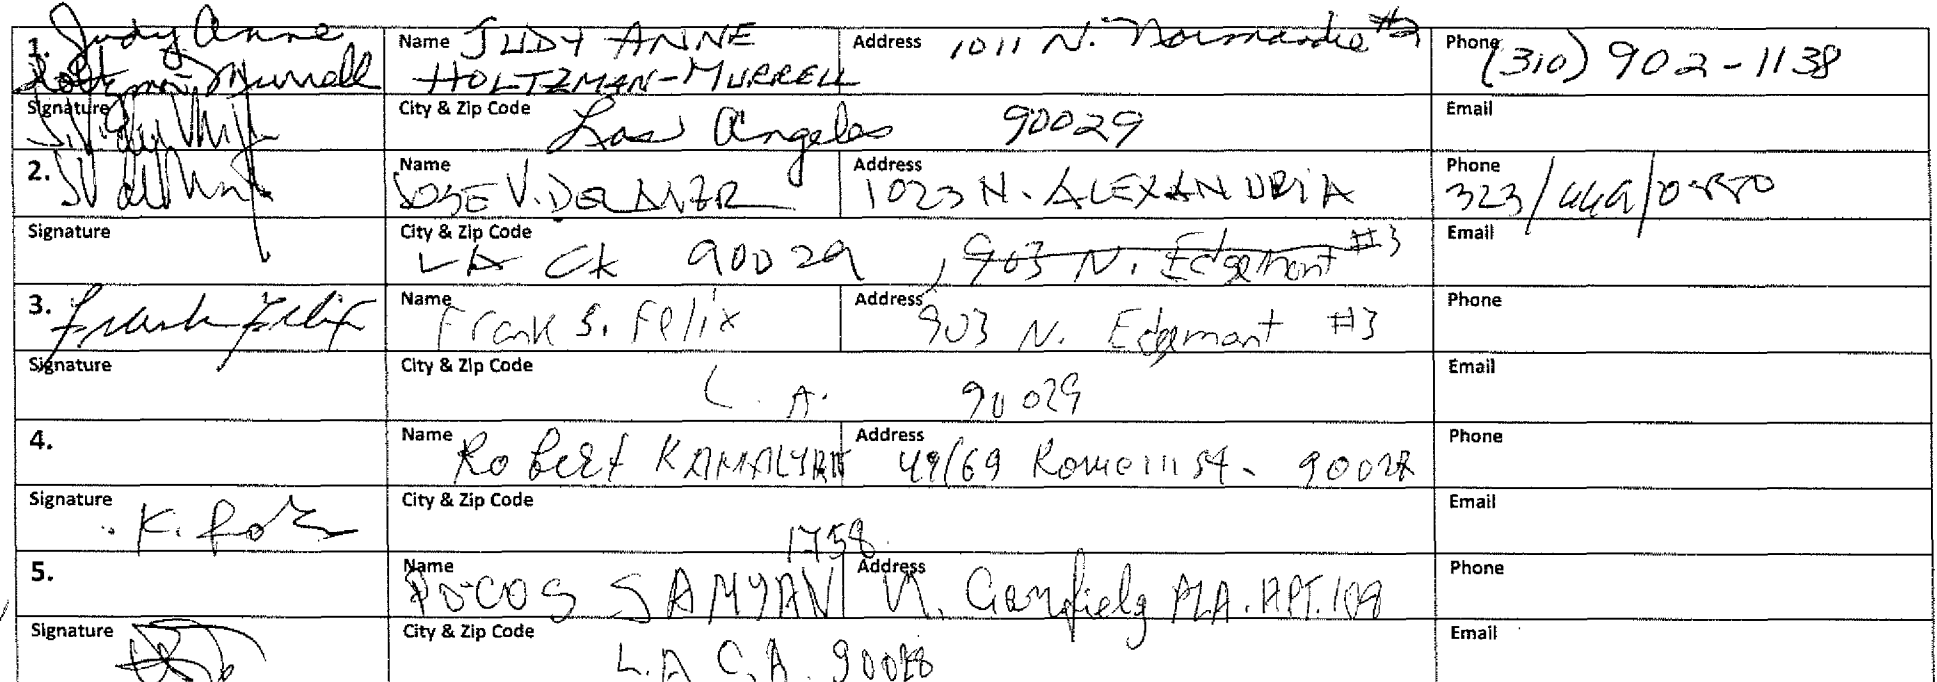 Judy Anne
1. Holtzman-Murrell Name JUDY ANNE Address 1011 N. Normandie #2 Phone (310) 902-1138
HOLTZMAN-MURRELL
Signature City & Zip Code Los Angeles 90029 Email
2. Name JOSE V. Address 1023 N. ALEXANDRIA Phone 323/
Signature City & Zip Code LA CA 90029 , 903 N. Edgemont #3 Email
3. Frank Felix Name Frank S. Felix Address 903 N. Edgemont #3 Phone
Signature City & Zip Code L. A. 90029 Email
4. Name Robert KAMALYAN Address Phone
Signature K. City & Zip Code Email
1758
5. Name SAMYAN Address N. Garfield PLA. APT. Phone
Signature City & Zip Code L.A C.A. 90028 Email